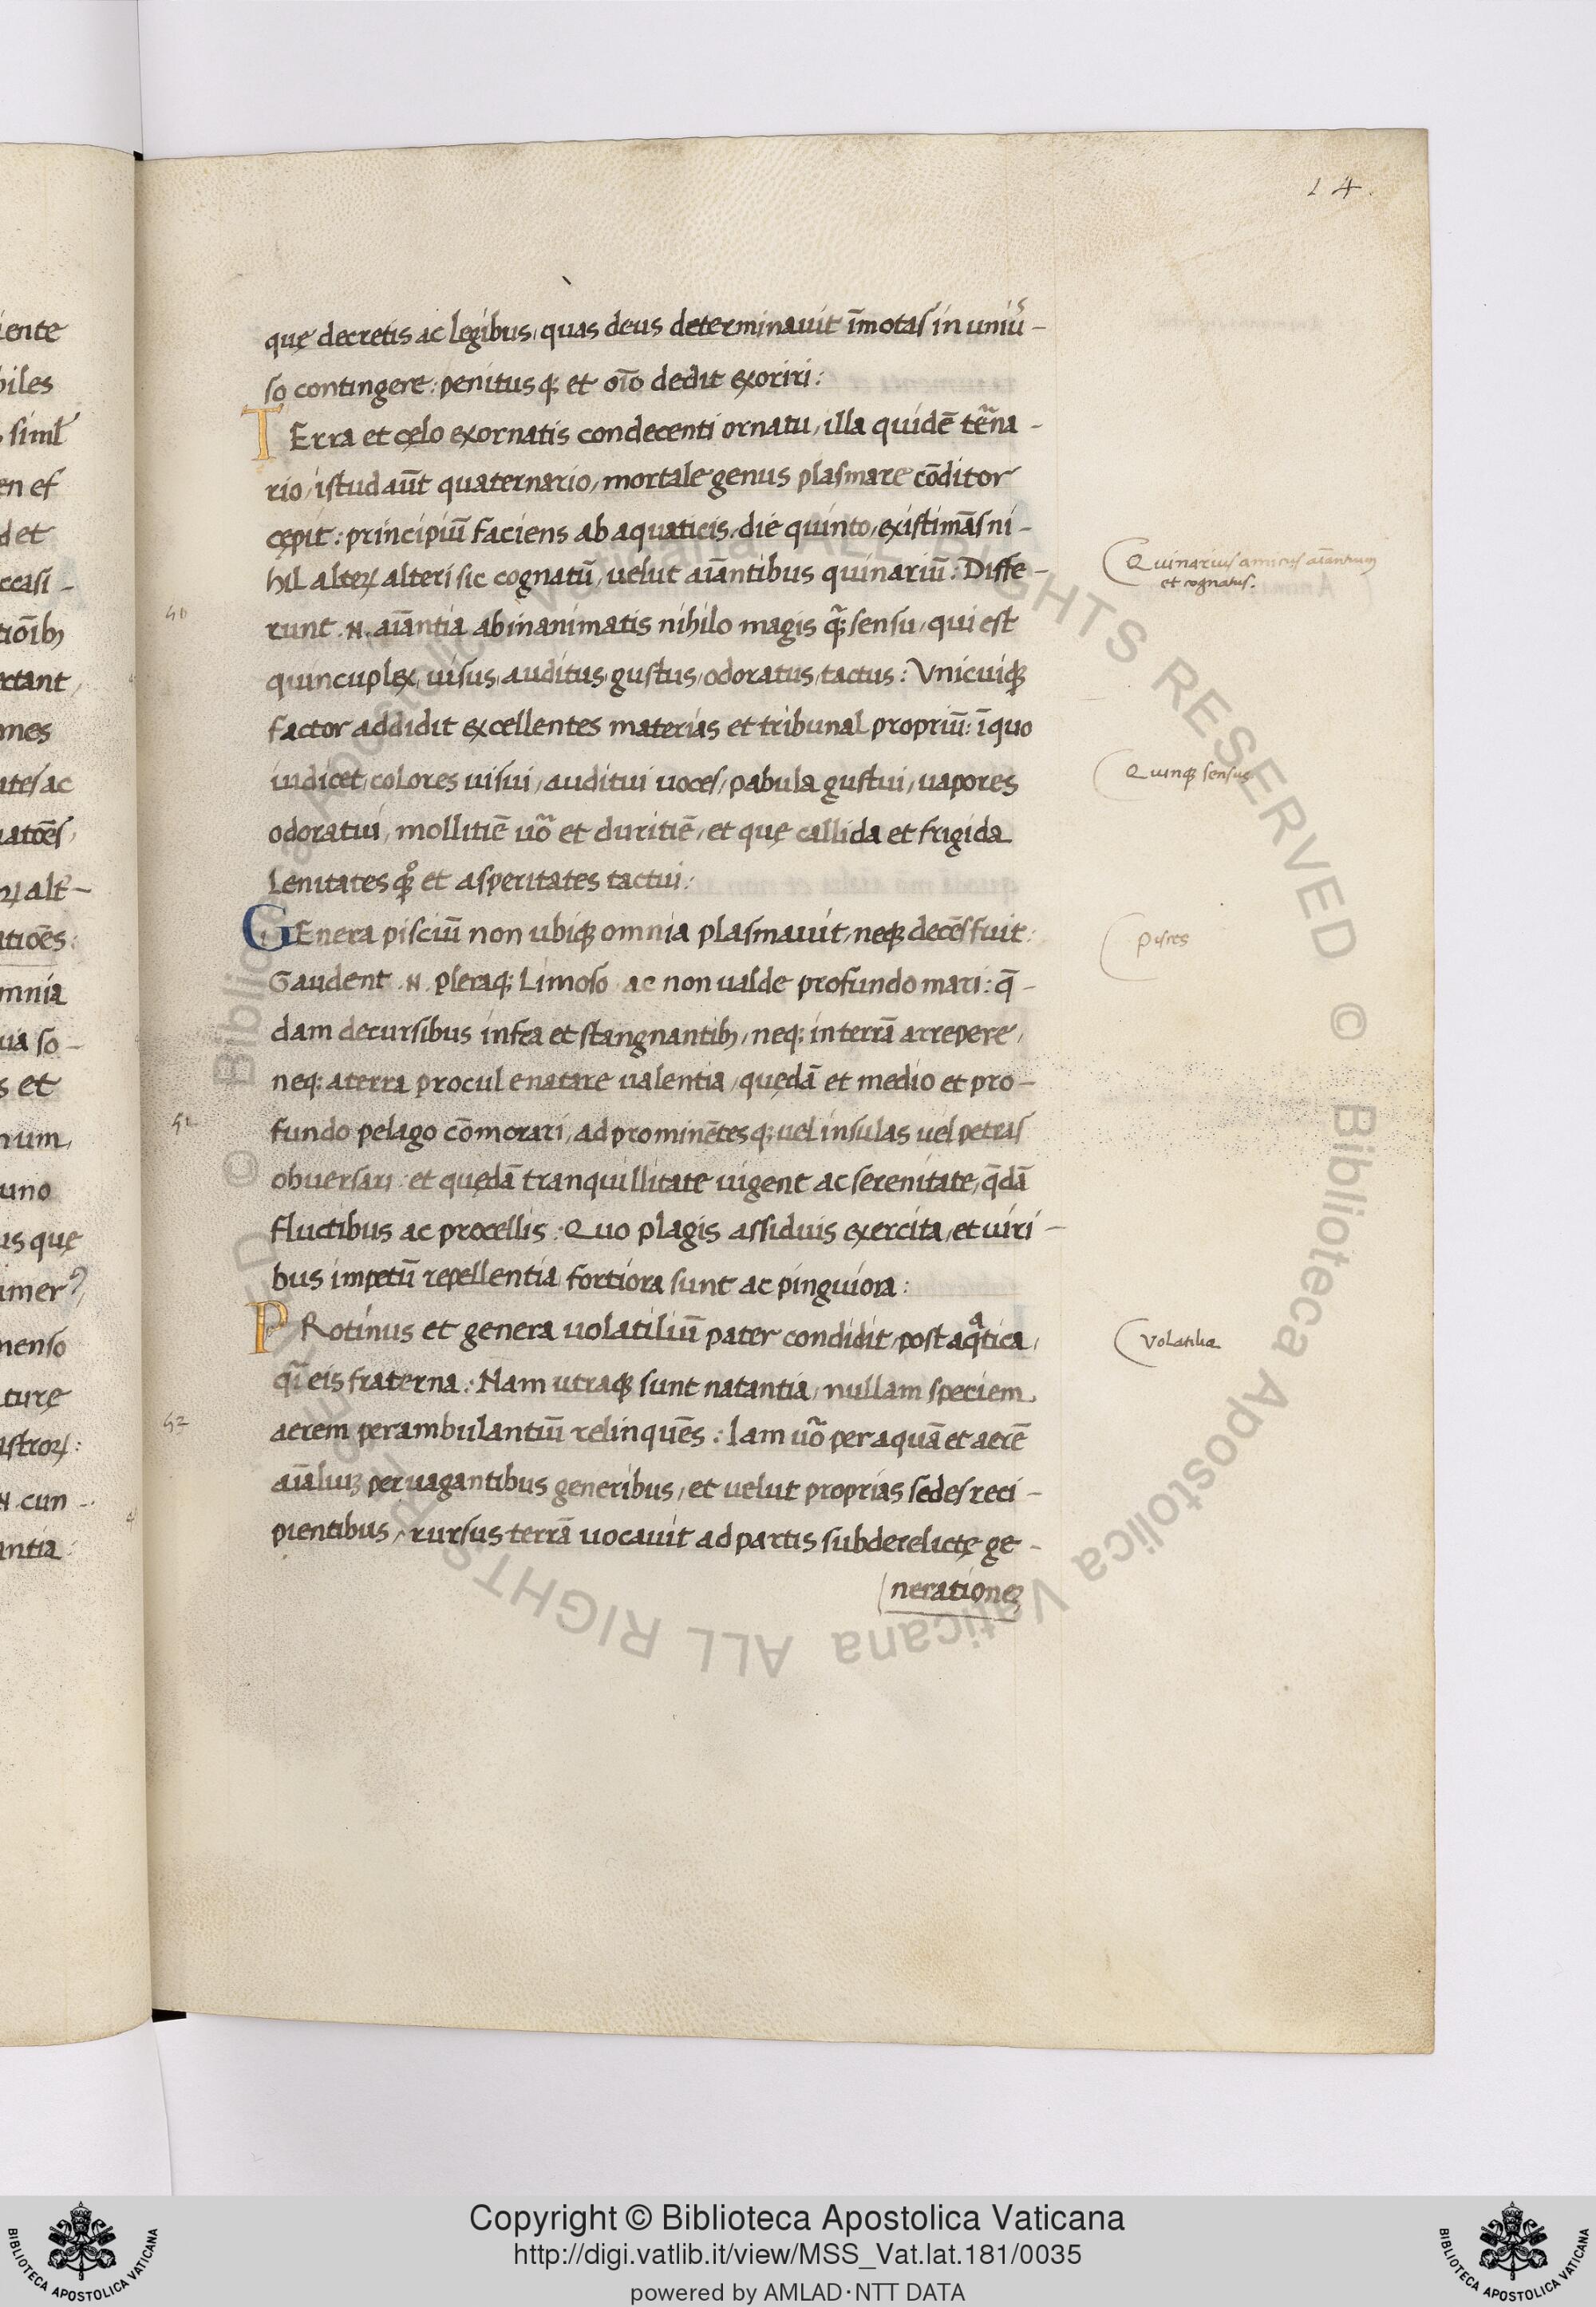 14.
que decretis ac legibus, quas deus determinauit īmotas in uniu᷒ -
so contingere: penitusq; et oīo dedit exoriri:
TErra et cęlo exornatis condecenti ornatu, illa quidē tēna -
rio, istud aūt quaternario, mortale genus plasmare cōditor
cępit: principiū faciens ab aquaticis, die quinto, existimās ni -
hil alterꝝ alteri sic cognatū, uelut aīantibus quinariū: Diffe -
runt .N. aīantia ab inanimatis nihilo magis q̄; sensu, qui est
quincuplex, uisus, auditus, gustus, odoratus, tactus: Vnicuiq;
factor addidit excellentes materias et tribunal propriū: ī quo
iudicet, colores uisui, auditui uoces, pabula gustui, uapores
odoratui, mollitiē uo᷈ et duritiē, et quę callida et frigida
Lenitates q;̊ et asperitates tactui:
GEnera pisciū non ubiq; omnia plasmauit, neq; decēs fuit:
Gaudent .N. pleraq; Limoso ac non ualde profundo mari: q̄ -
dam decursibus infra et stangnantibꝫ, neq; in terrā arrepere,
neq; a terra procul enatare ualentia, quędā et medio et pro -
fundo pelago cōmorari, ad prominētes q; uel insulas uel petras
obuersari: et quędā tranquillitate uigent ac serenitate, q̄dā
fluctibus ac procellis: Quo plagis assiduis exercita, et uiri -
bus impetū repellentia fortiora sunt ac pinguiora:
PRotinus et genera uolatiliū pater condidit, post aqͣtica,
qm̄ eis fraterna: Nam utraq; sunt natantia, nullam speciem
aerem perambulantiū relinquēs: Iam uo᷈ per aquā et aerē
aīaliuꝫ peruagantibus generibus, et uelut proprias sedes reci -
pientibus, rursus terrā uocauit ad partis subderelictę ge -
nerationeꝫ
Quinarius amicus aīantium
et cognatus.
Quinq; sensus
Pisces
Volatilia
50
51
52
iente
biles
siml̄
en ef
d et
ccasi -
tiōibꝫ
ctant,
mnes
ates ac
uatoēs,
ꝝ alt᷒ -
atioēs:
mnia
uia so -
s et
num,
uno
us quę
imer?,
menso
turę
astroꝝ:
N. cun -
antia:
© Biblioteca Apostolica Vaticana ALL RIGHTS RESERVED © Biblioteca Apostolica Vaticana ALL RIGHTS RESERVED
Copyright © Biblioteca Apostolica Vaticana
http://digi.vatlib.it/view/MSS_Vat.lat.181/0035
powered by AMLAD·NTT DATA
BIBLIOTECA APOSTOLICA VATICANA
BIBLIOTECA APOSTOLICA VATICANA